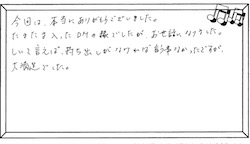 今回は、本当にありがとうございました。
たまたま入ったDMの縁でしたが、お世話になりました。
しいて言えば、持ち出しがなければ言う事なかったですが、
大満足でした。